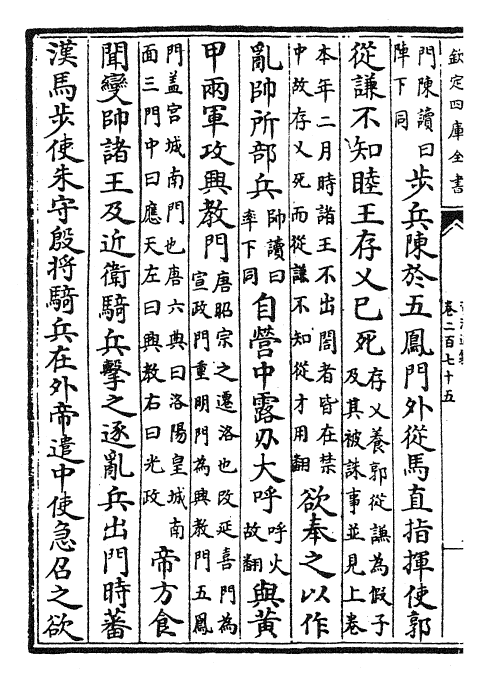 欽定四庫全書
卷二百七十五
門陳讀曰陣下同步兵陳於五鳳門外從馬直指揮使郭
從謙不知睦王存乂已死存乂養郭從謙為假子及其被誅事並見上卷
本年二月時諸王不出閤者皆在禁中故存乂死而從謙不知從才用翻欲奉之以作
亂帥所部兵帥讀曰率下同自營中露刃大呼呼火故翻與黃
甲兩軍攻興教門唐昭宗之遷洛也改延喜門為宣政門重明門為興教門五鳳
門盖宮城南門也唐六典曰洛陽皇城南面三門中曰應天左曰興教右曰光政帝方食
聞變帥諸王及近衛騎兵擊之逐亂兵出門時蕃
漢馬步使朱守殷將騎兵在外帝遣中使急召之欲